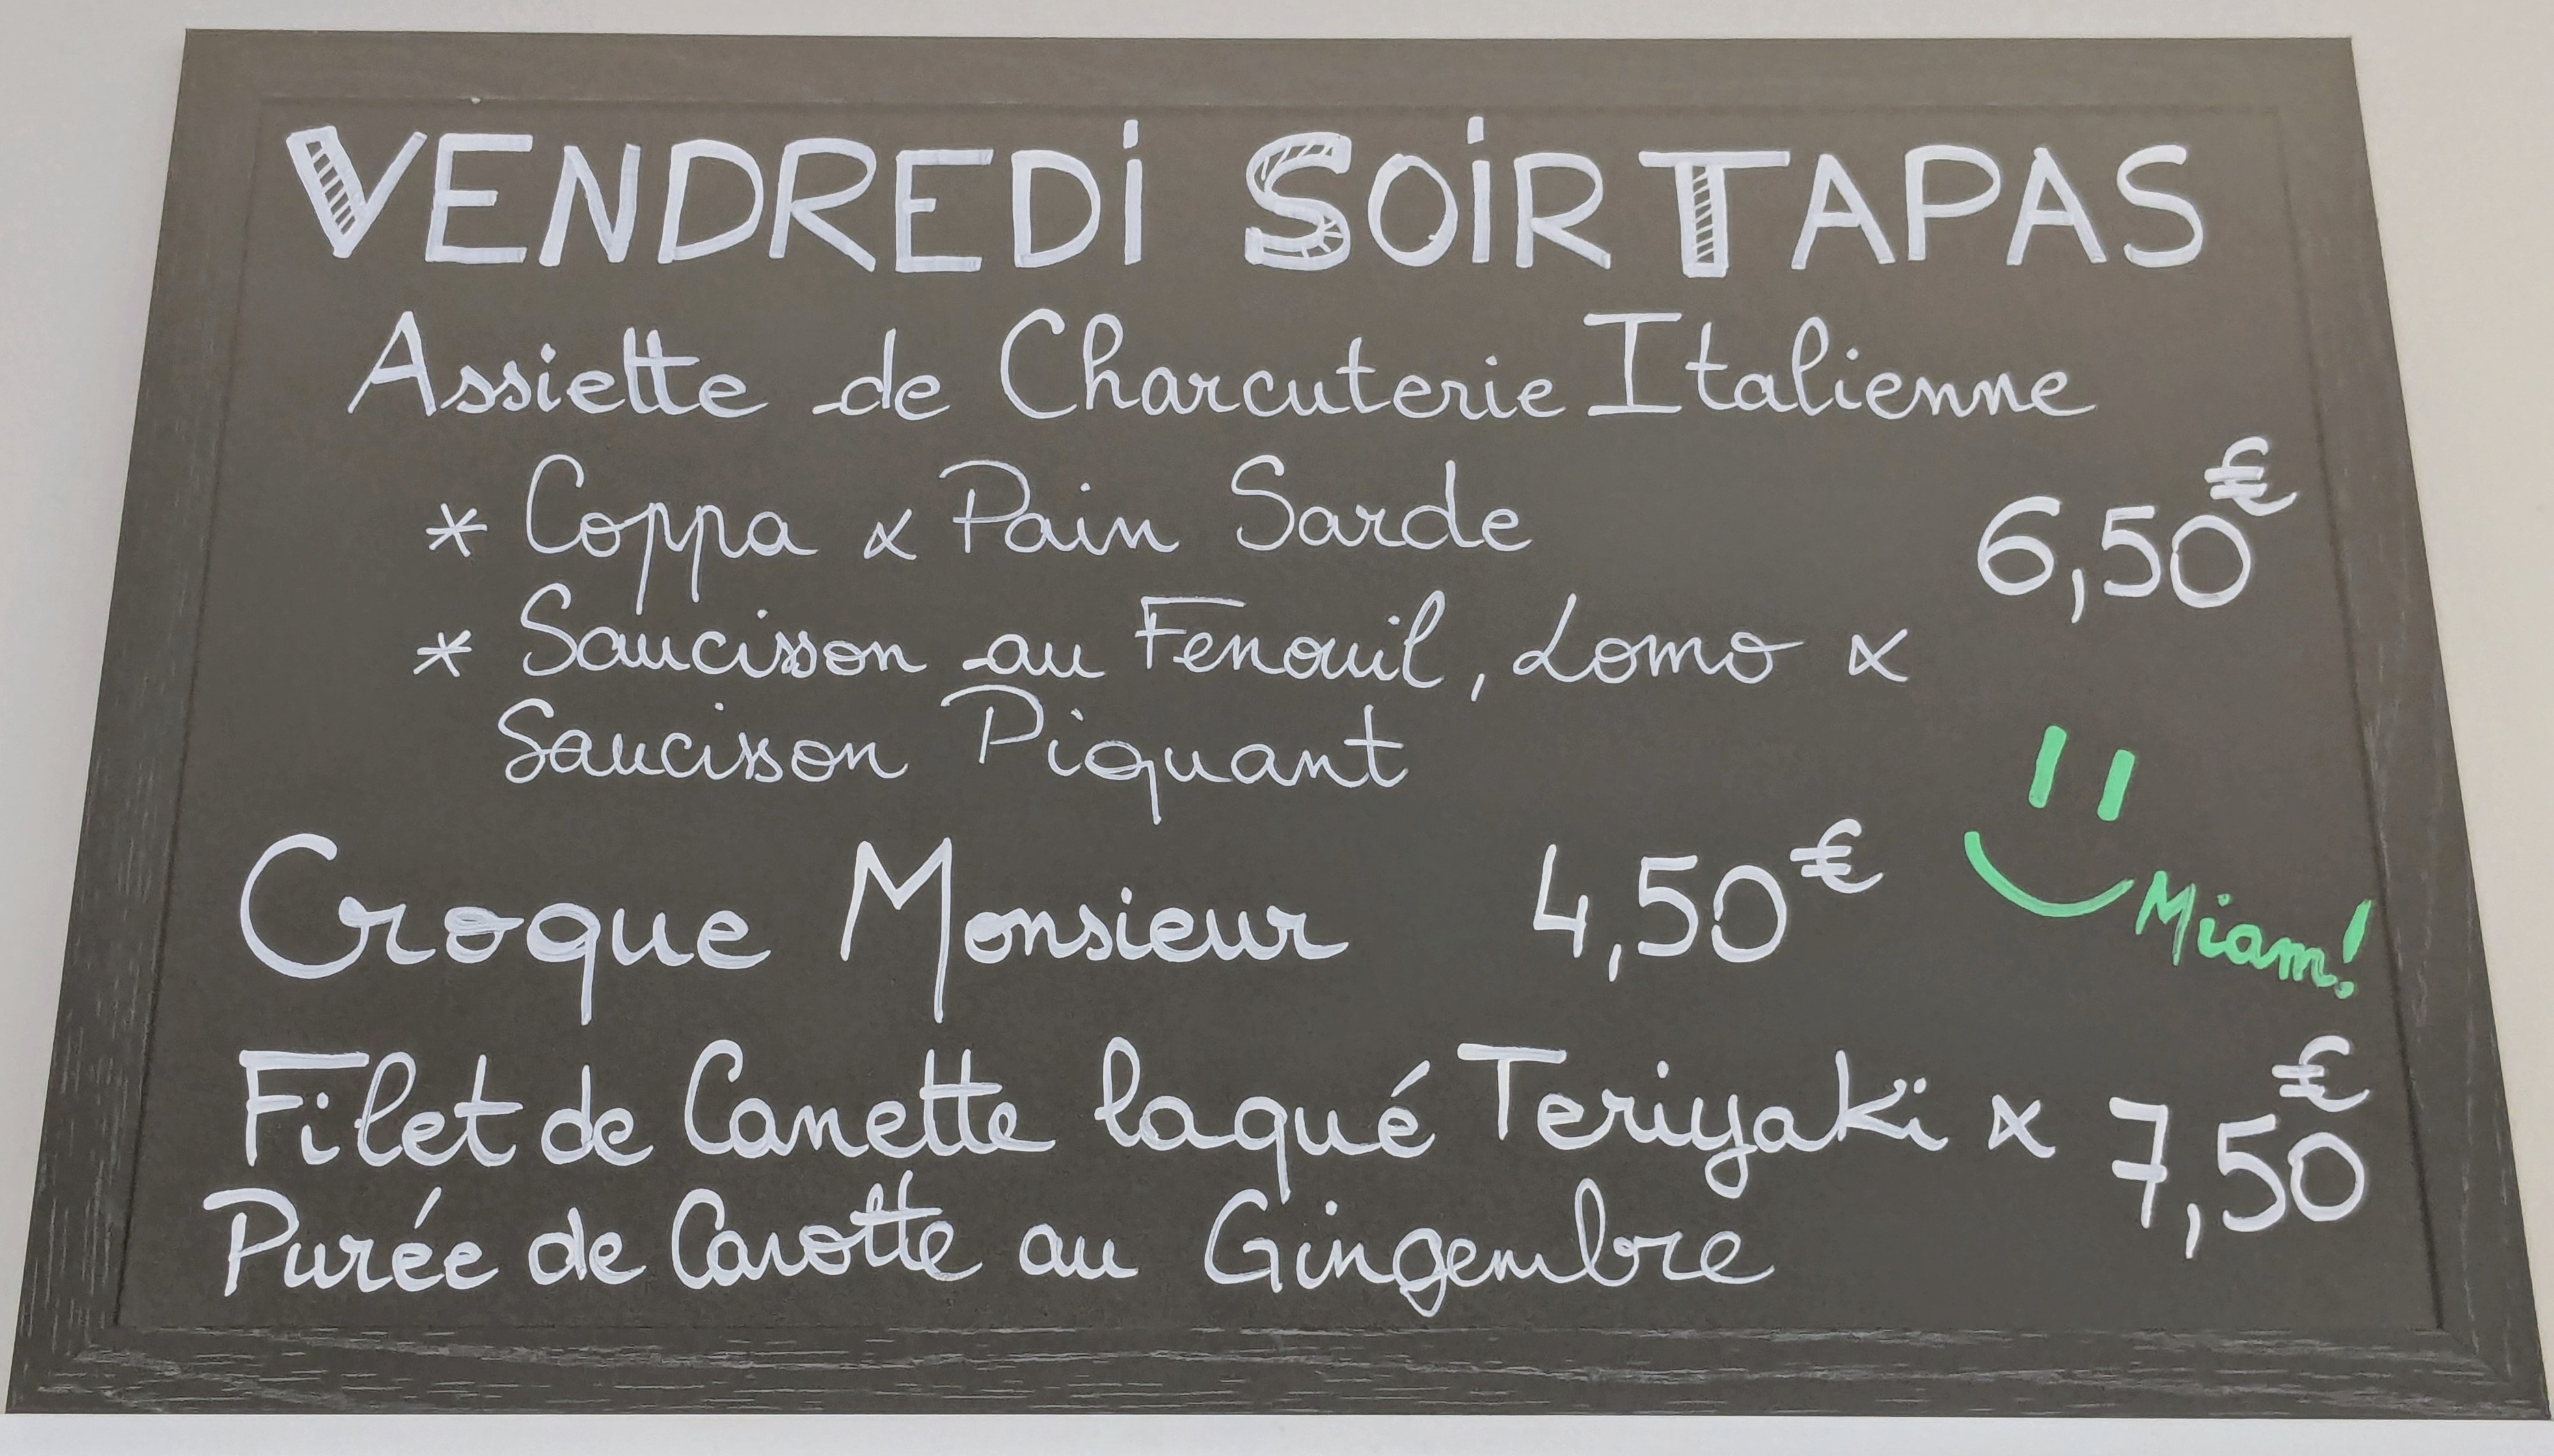 VENDREDI SOIR TAPAS
Assiette de Charcuterie Italienne
* Coppa & Pain Sarde 6,50€
* Saucisson au Fenouil, Lomo &
Saucisson Piquant
Croque Monsieur 4,50€
Miam!
Filet de Canette laqué Teriyaki & 7,50€
Purée de Carotte au Gingembre